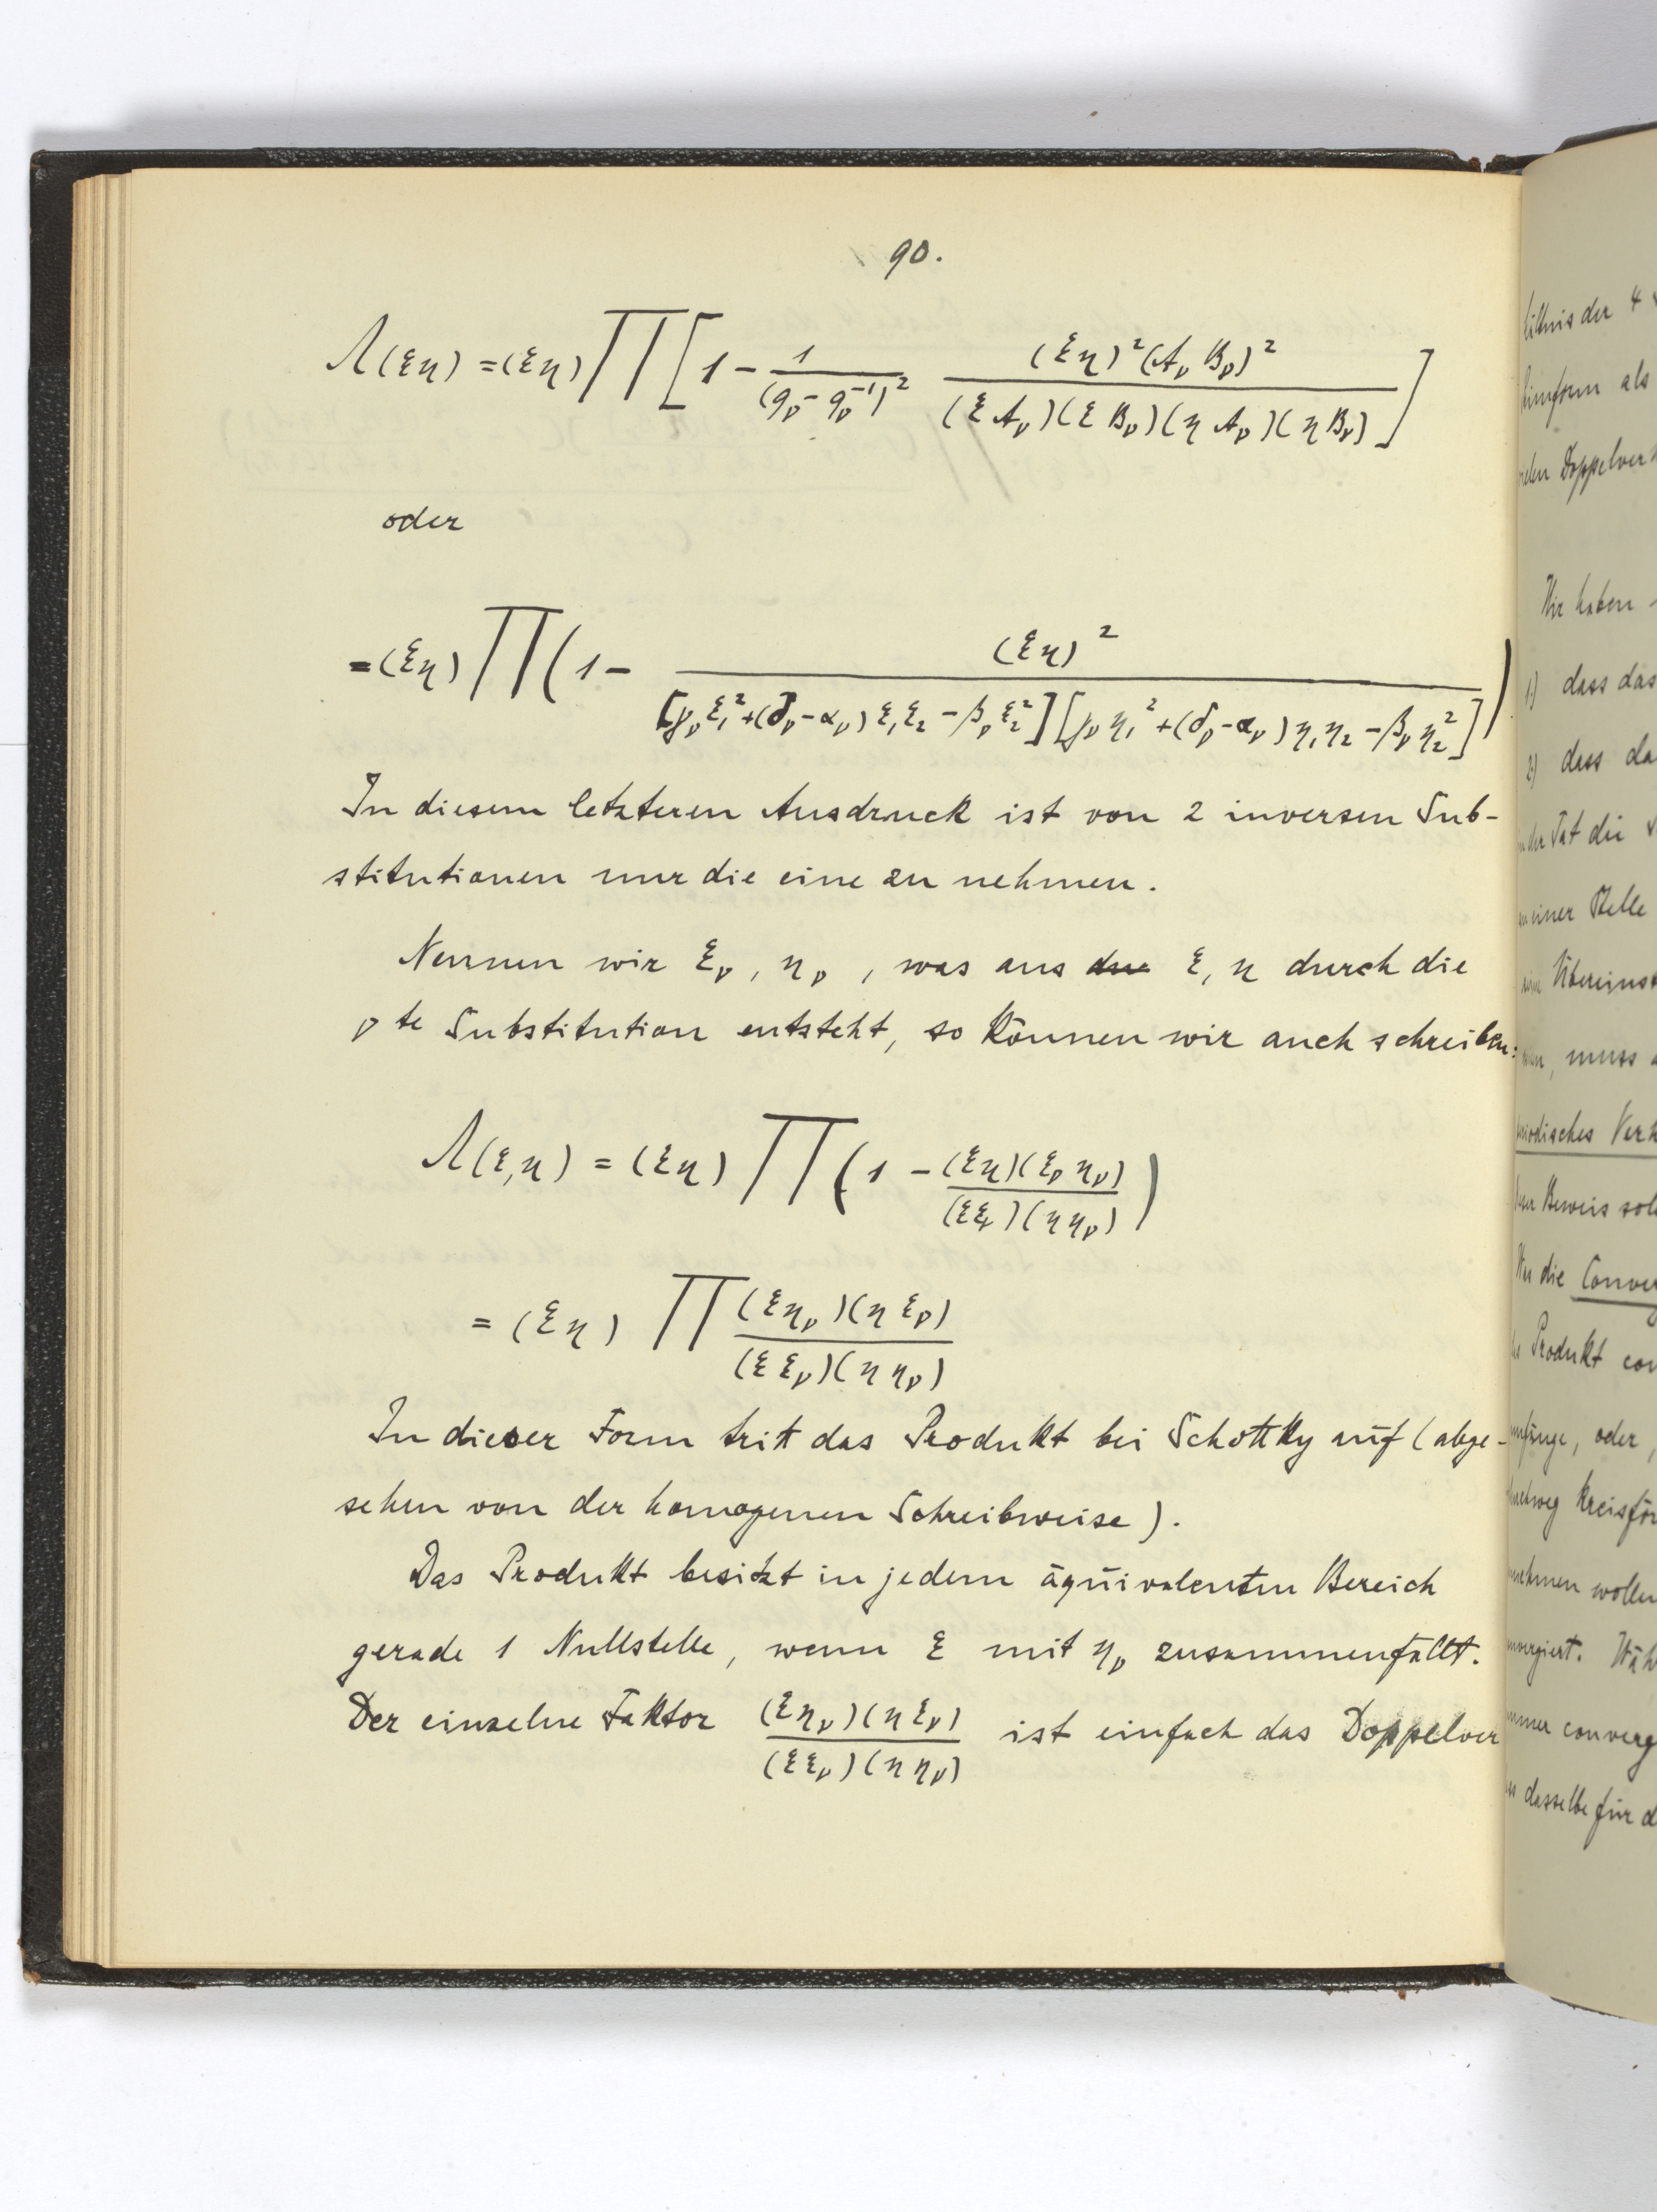 90.
Λ(ξη) = (ξη) ∏ [1 − 1/(q_ν − q_ν^{-1})² (ξη)²(A_ν B_ν)² / (ξ A_ν)(ξ B_ν)(η A_ν)(η B_ν)]
oder
= (ξη) ∏ (1 − (ξη)² / [γ_ν ξ₁² + (δ_ν − α_ν) ξ₁ξ₂ − β_ν ξ₂²] [γ_ν η₁² + (δ_ν − α_ν) η₁η₂ − β_ν η₂²])
In diesem letzteren Ausdruck ist von 2 inversen Sub-
stitutionen nur die eine zu nehmen.
Nennen wir ξ_ν, η_ν, was aus ξ, η durch die
ν te Substitution entsteht, so können wir auch schreiben:
Λ(ξ,η) = (ξη) ∏ (1 − (ξη)(ξ_ν η_ν) / (ξξ_ν)(ηη_ν))
= (ξη) ∏ (ξη_ν)(ηξ_ν) / (ξξ_ν)(ηη_ν)
In dieser Form tritt das Produkt bei Schottky auf (abge-
sehen von der homogenen Schreibweise).
Das Produkt besitzt in jedem äquivalenten Bereich
gerade 1 Nullstelle, wenn ξ mit η_ν zusammenfällt.
Der einzelne Faktor (ξη_ν)(ηξ_ν) / (ξξ_ν)(ηη_ν) ist einfach das Doppelver
der 4
als
Doppelver
Wir haben
1) dass das
2) dass
der Tat die
einer Stelle
muss
Beweis
die
Produkt
oder
wollen
dasselbe für